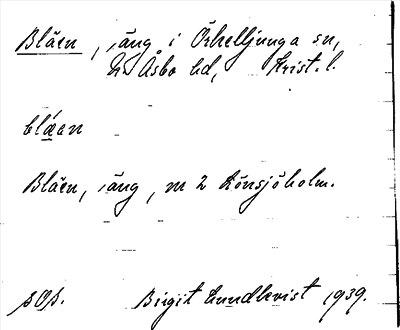 Blåen, äng i Örkelljunga sn,
N. Åsbo hd, Krist. l.
blá̱en
Blåen, äng, m 2 Rönsjöholm.
Birgit Lundkvist 1939.